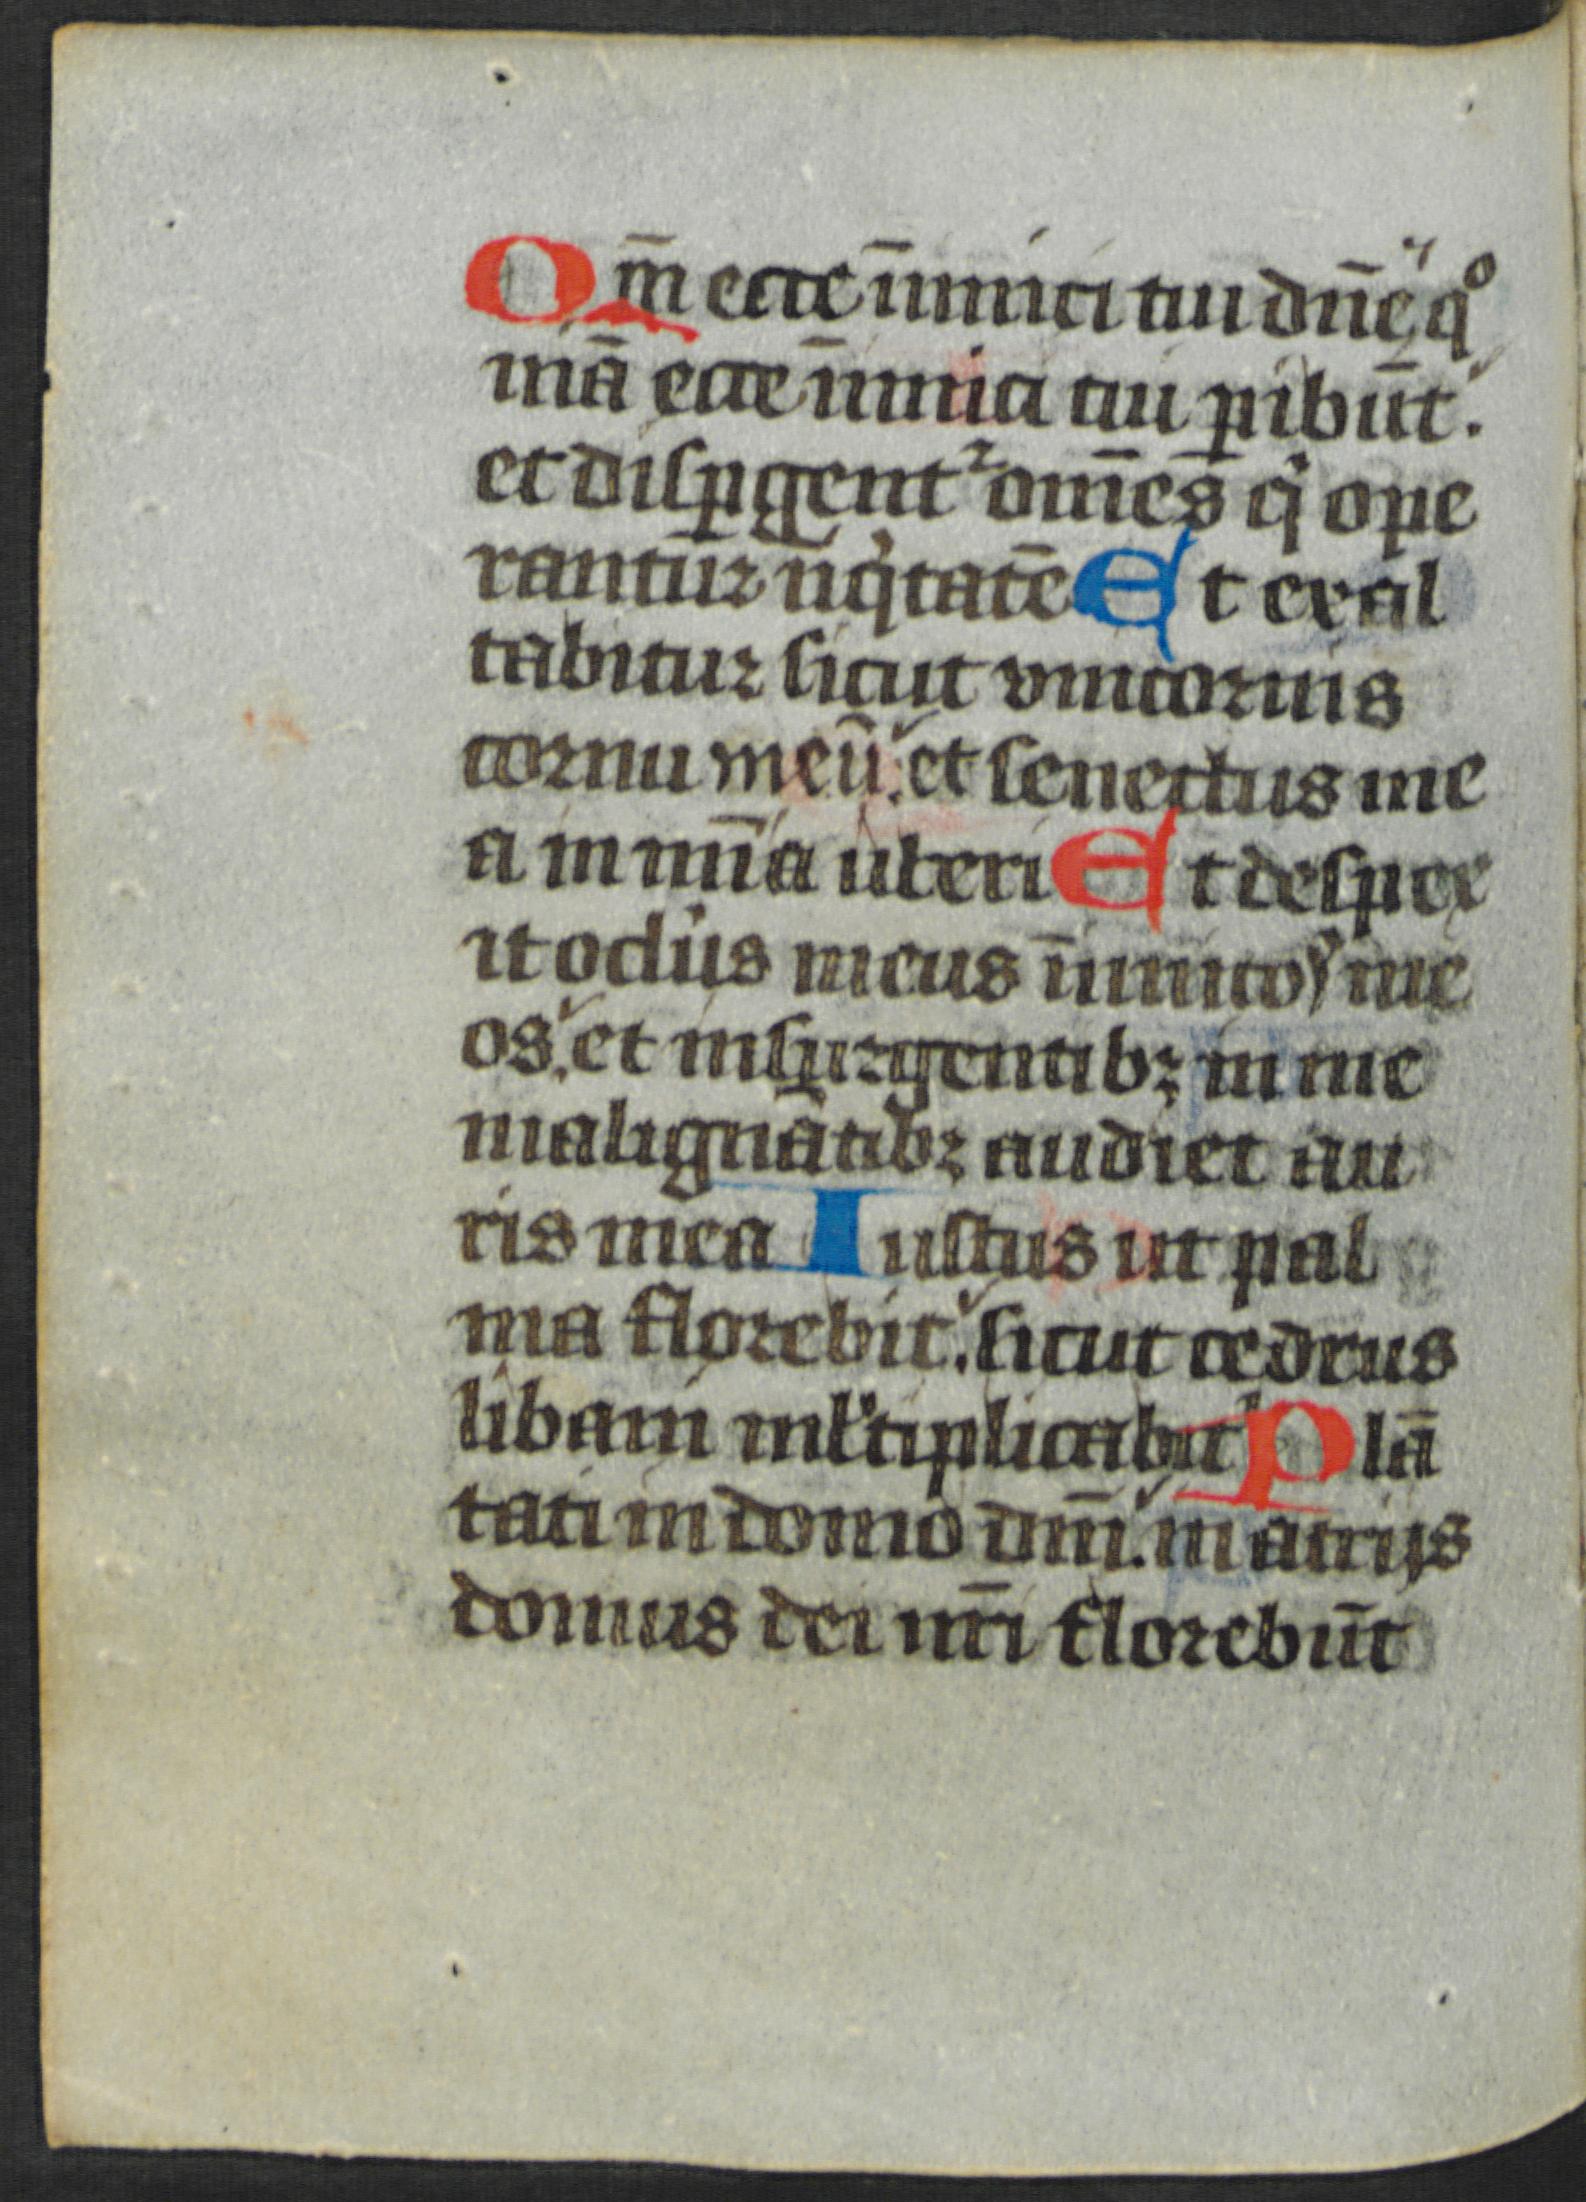 Qm̄ ecce īnimici tui dn̄e qͦ
niā ecce īnimici tui ꝑibūt.
et diſꝑgent᷑ om̄es qͥ ope
rantur īiqͥtatē Et exal
tabitur ſicut vnicornis
cornu meū. et ſenectus me
a in mīa uberi Et deſpex
it oclūs meus īnimicoꝝ me
os. et inſurgentibꝫ in me
malignātibꝫ audiet au
ris mea Iuſtus ut pal
ma florebit. ſicut cedrus
libani ml̄tiplicabit᷑ Plā
tati in domo dn̄i. in atrijs
domus dei nr̄i florebūt